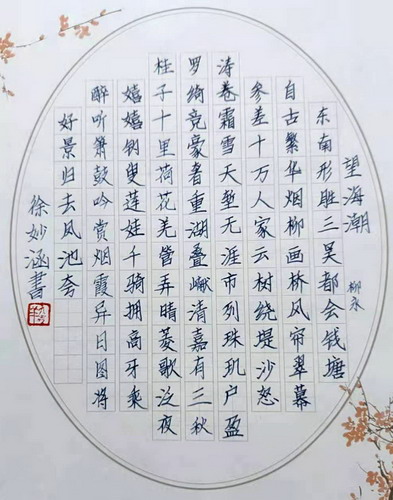 望海潮
柳永
东南形胜三吴都会钱塘
自古繁华烟柳画桥风帘翠幕
参差十万人家云树绕堤沙怒
涛卷霜雪天堑无涯市列珠玑户盈
罗绮竞豪奢重湖叠𪩘清嘉有三秋
桂子十里荷花羌管弄晴菱歌泛夜
嬉嬉钓叟莲娃千骑拥高牙乘
醉听箫鼓吟赏烟霞异日图将
好景归去凤池夸
徐妙涵書